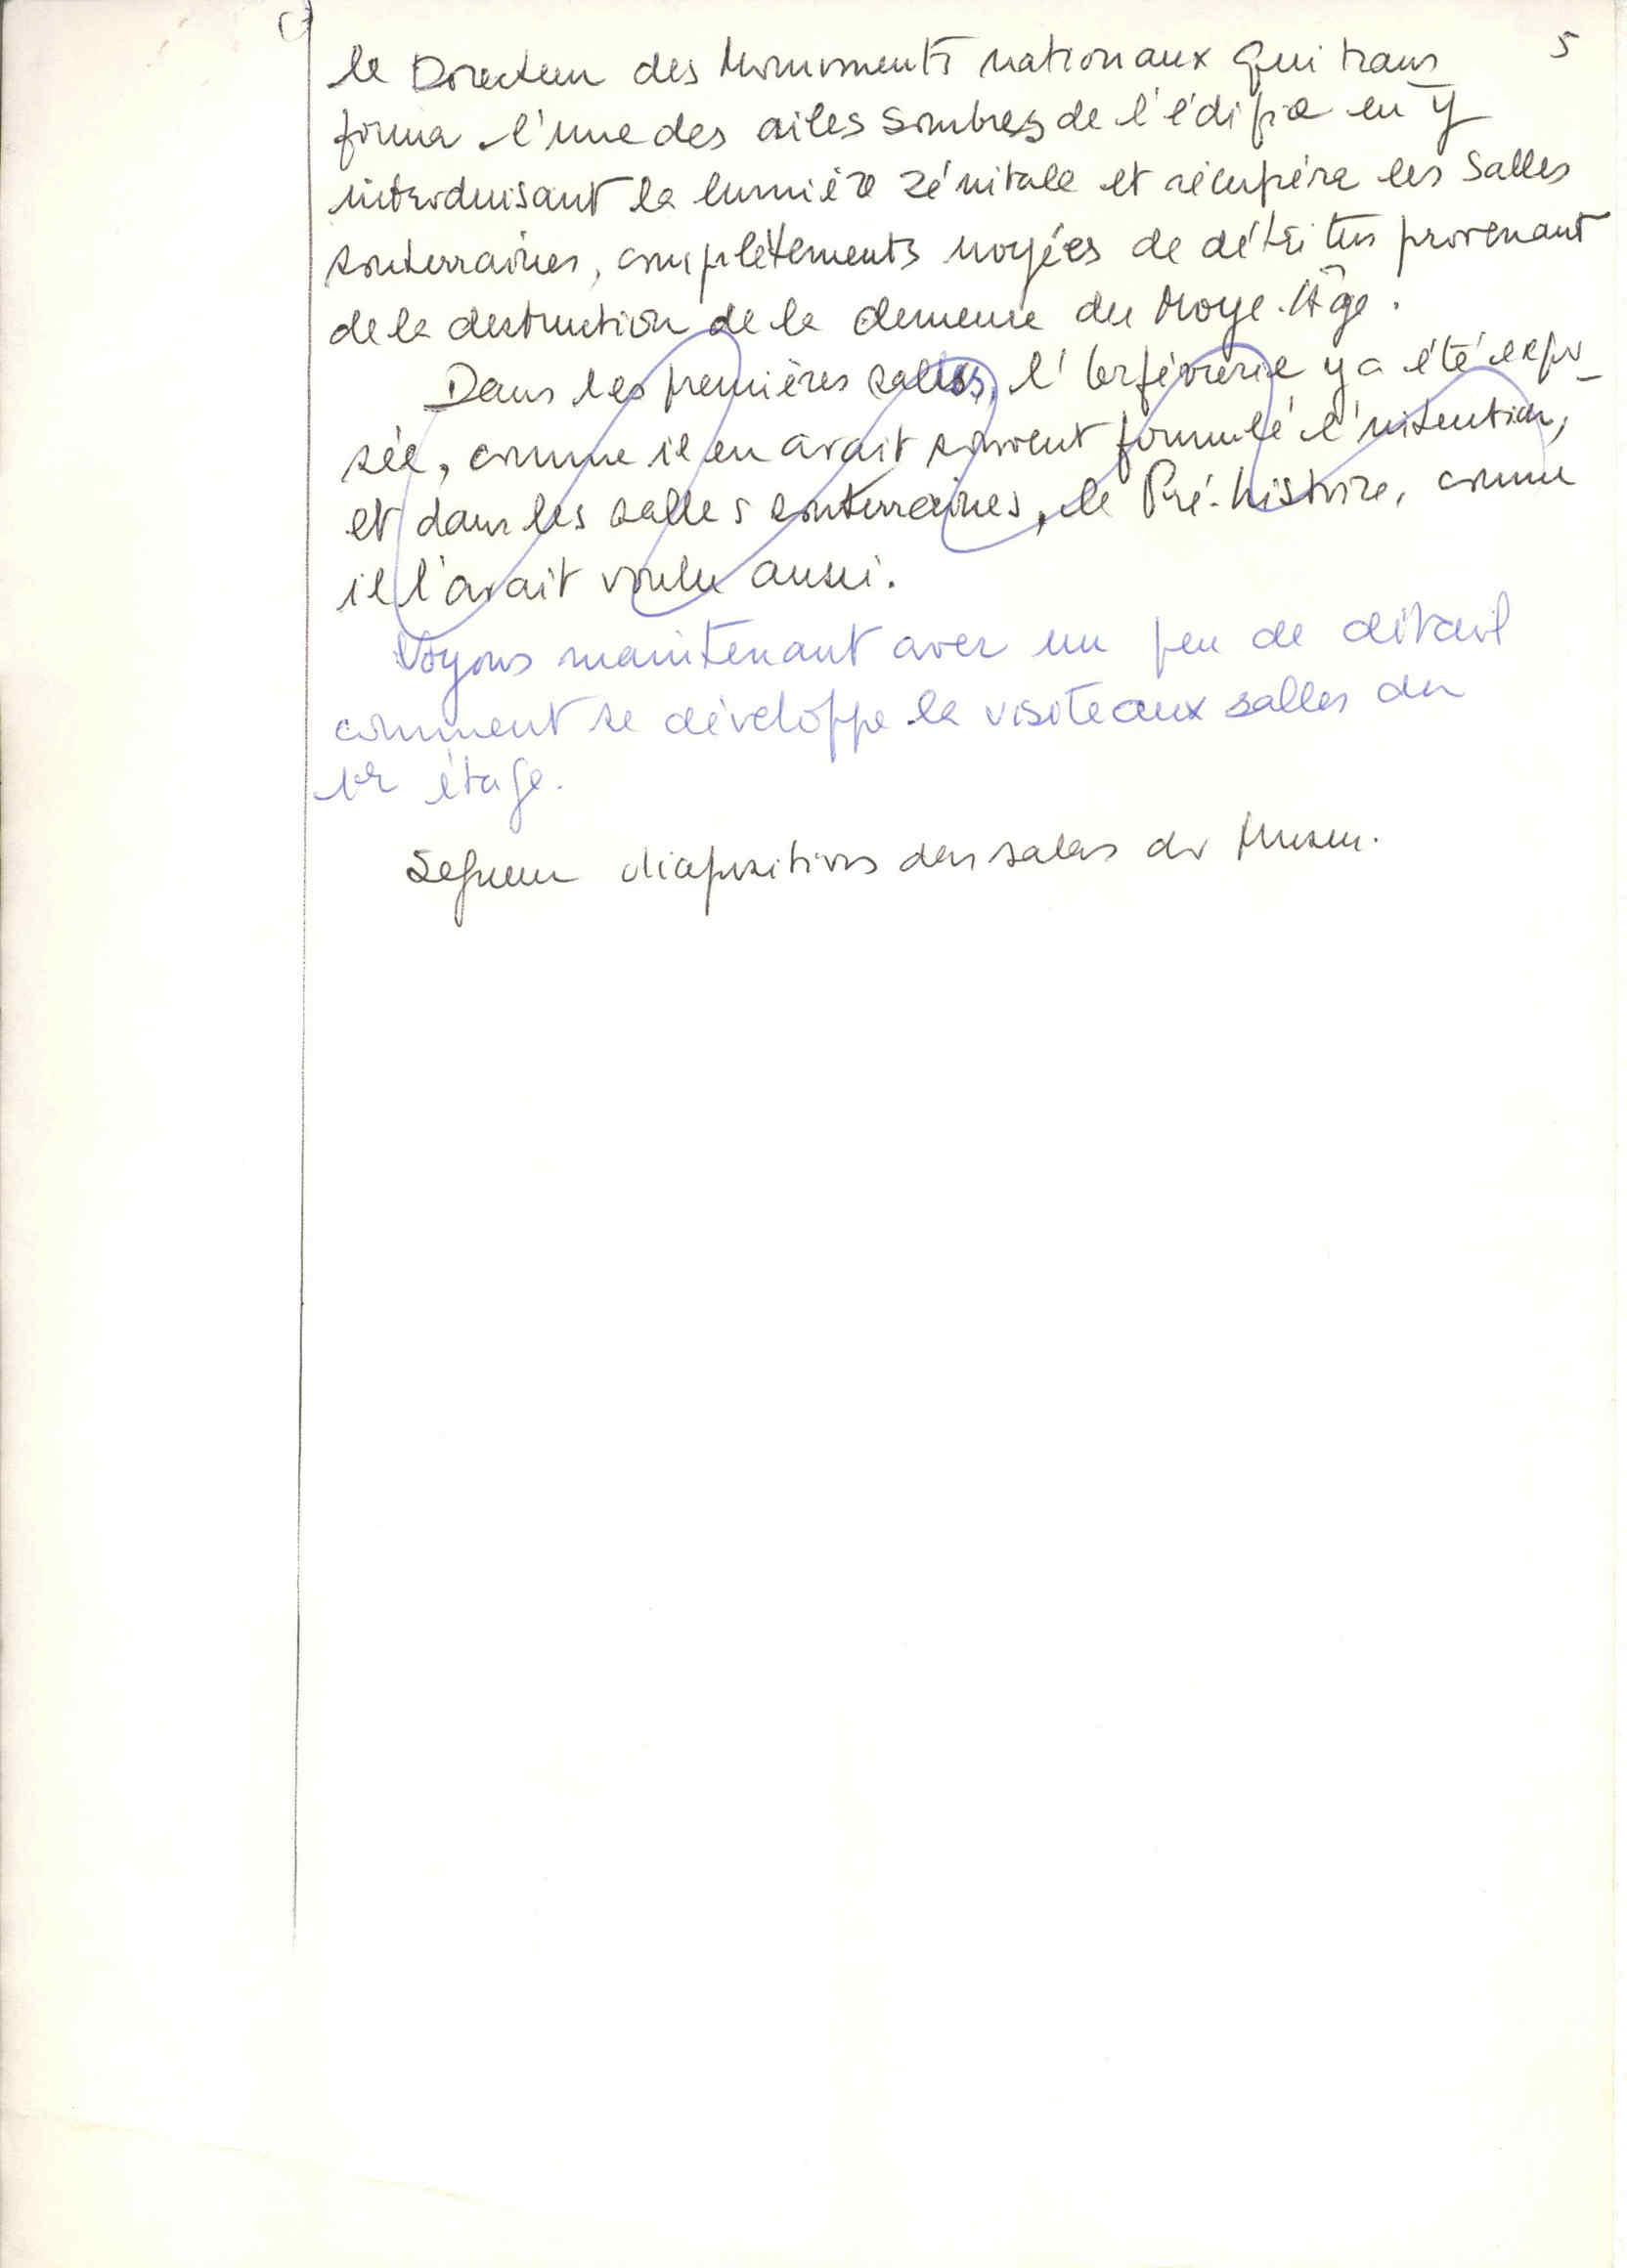 5
le Directeur des Monuments nationaux qui trans
forma l'une des ailes sombres de l'édifice en y
introduisant la lumière zénitale et récupéra les salles
souterraines, complètements noyées de détritus provenant
de la destruction de la demeure du Moye-Âge.
Dans les premières salles, l'orfévrerie y a été expo-
sée, comme il en avait souvent formulé l'intention,
et dans les salles souterraines, le Pré-histoire, comme
il l'avait voulu aussi.
Voyons maintenant avec un peu de détail
comment se développe la visite aux salles du
1er étage.
Seguem diapositivos das salas do Museu.